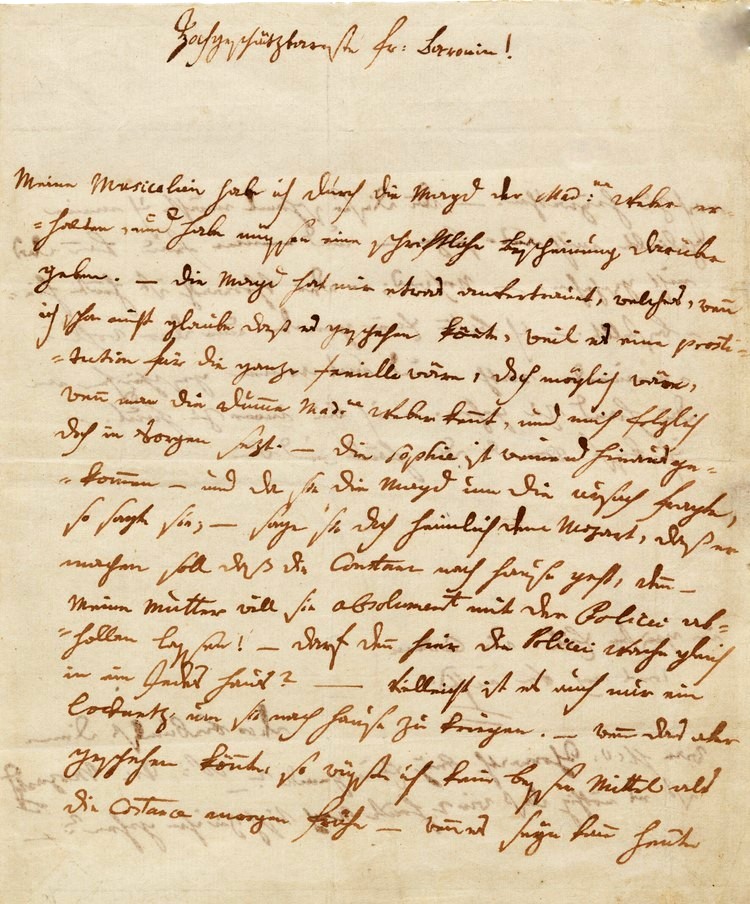 Hochgeschäzbareste fr: Baronin!
Meine Musicalien habe ich durch die Magd der Mad:me Weber er-
=halten, und habe müssen eine schriftliche bescheinung darüber
geben. — die Magd hat mir etwas anvertrauet, welches, wenn
ich schon nicht glaube daß es geschehen könte, weil es eine prosti-
=tution für die ganze familie wäre, doch möglich wäre,
wenn man die dumme Mad:me Weber kennt, und mich folglich
doch in Sorgen sezt. — die Sophie ist weinend hinausge-
=kommen — und da sie die Magd um die ursach fragte,
so sagte sie; — sage sie doch heimlich dem Mozart, daß er
machen soll daß die Constanz nach hause geht, denn —
Meine Mutter will sie absolument mit der Policei ab-
=hollen lassen! — darf denn hier die Policei Wache gleich
in ein Jedes haus? — Vielleicht ist es auch nur ein
locknetz um sie nach hause zu kriegen. — wenn das aber
geschehen könnte, so wüsste ich kein bessers Mittel als
die Costance Morgen frühe — wenn es seyn kan heute